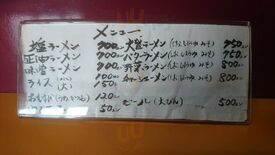 メニュー
塩ラーメン 700
正油ラーメン 700
味噌ラーメン 700
ライス 100
(大) 150
おむすび 120
50
ラーメン(しおしょうゆみそ) 750
バターラーメン(しおしょうゆみそ) 750
野菜ラーメン(しおしょうゆみそ) 800
チャーシューメン(しおしょうゆみそ) 800
ビール(大びん) 500